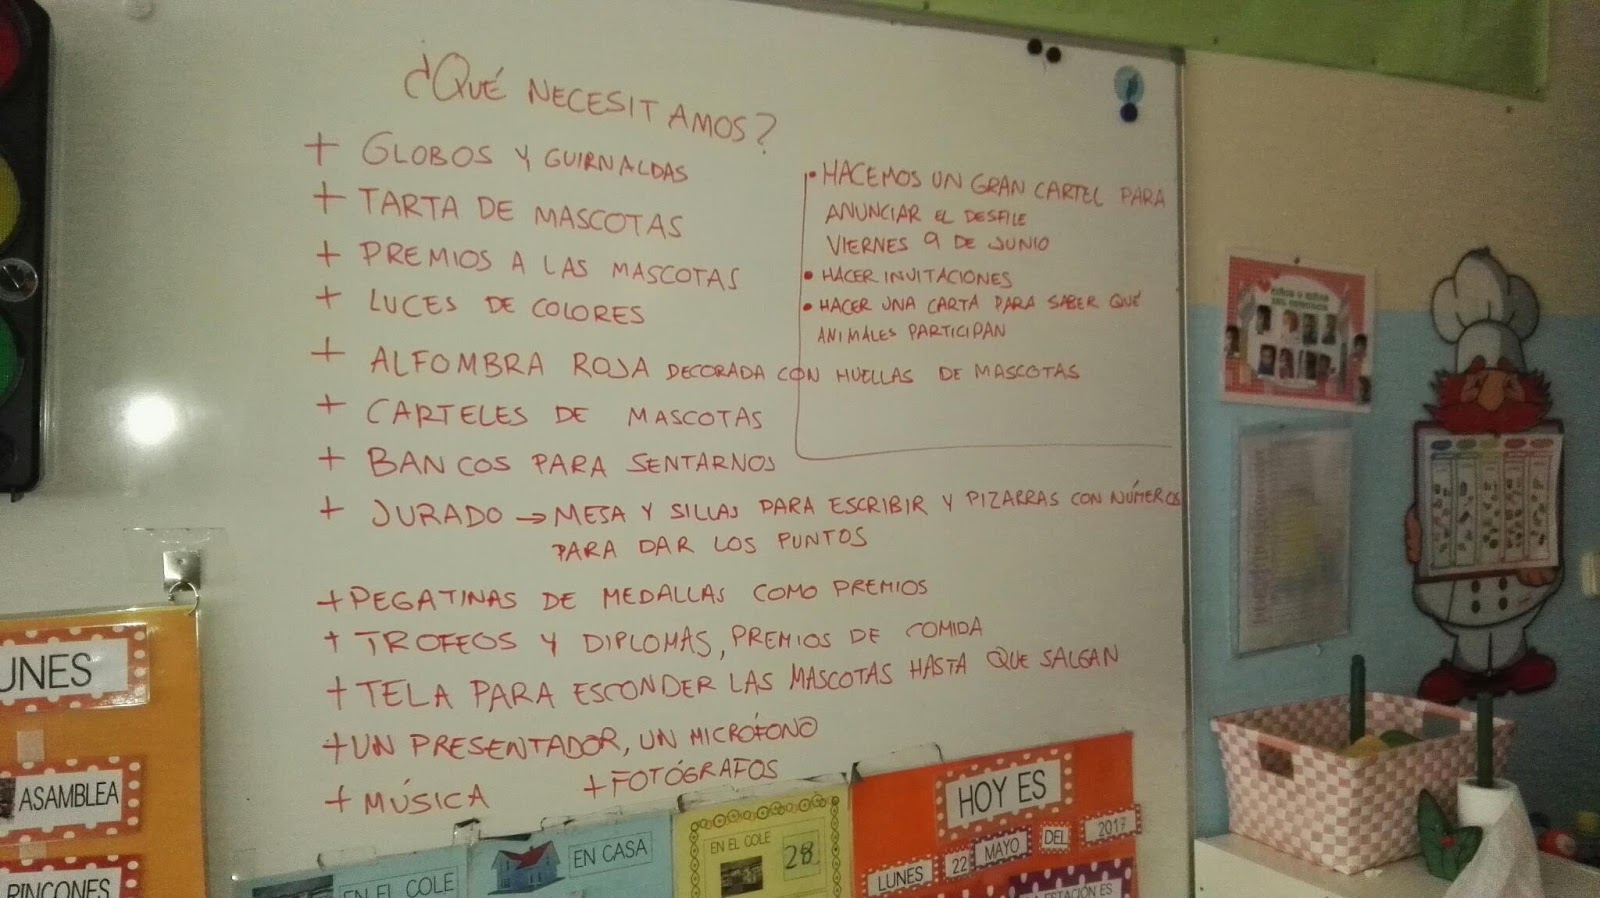 ¿QUÉ NECESITAMOS?
+ GLOBOS Y GUIRNALDAS
+ TARTA DE MASCOTAS
+ PREMIOS A LAS MASCOTAS
+ LUCES DE COLORES
+ ALFOMBRA ROJA DECORADA CON HUELLAS DE MASCOTAS
+ CARTELES DE MASCOTAS
+ BANCOS PARA SENTARNOS
+ JURADO → MESA Y SILLAS PARA ESCRIBIR Y PIZARRAS CON NÚMEROS
PARA DAR LOS PUNTOS
+ PEGATINAS DE MEDALLAS COMO PREMIOS
+ TROFEOS Y DIPLOMAS, PREMIOS DE COMIDA
+ TELA PARA ESCONDER LAS MASCOTAS HASTA QUE SALGAN
+ UN PRESENTADOR, UN MICRÓFONO
+ MÚSICA + FOTÓGRAFOS
• HACEMOS UN GRAN CARTEL PARA
ANUNCIAR EL DESFILE
VIERNES 9 DE JUNIO
• HACER INVITACIONES
• HACER UNA CARTA PARA SABER QUÉ
ANIMALES PARTICIPAN
UNES
ASAMBLEA
RINCONES
EN EL COLE
EN CASA
EN EL COLE
28
HOY ES
LUNES 22 MAYO DEL 2017
ESTACIÓN ES